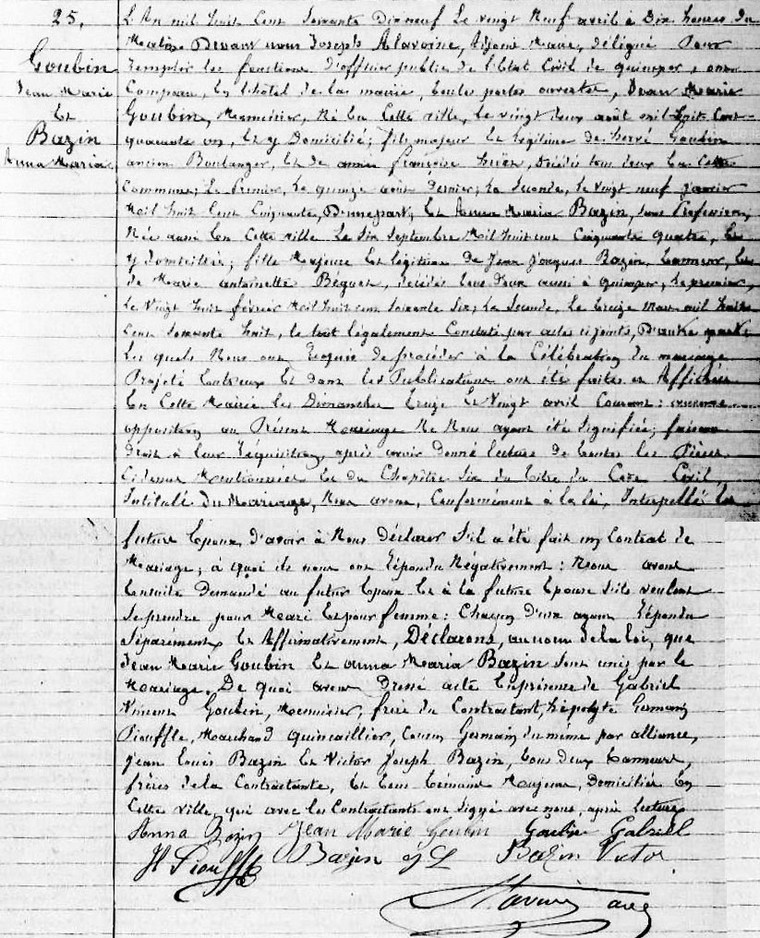 25.
Goubin
Jean Marie
Et
Bazin
Anna Maria
L'An mil huit Cent Soixante Dix neuf Le vingt Neuf avril à Dix heures du
Matin Devant nous Joseph Alavoine, Adjoint Maire, délégué Pour
remplir les fonctions d'officier public de l'Etat Civil de quimper, ont
Comparu, En l'hôtel de la mairie, toutes portes ouvertes, Jean Marie
Goubin, Menuisier, Né En Cette ville, le vingt deux août mil huit Cent
quarante un, et y Domicilié; fils majeur et légitime de hervé Goubin
ancien Boulanger, Et de année françoise décédés tous deux En Cette
Commune; Le Premier, Le quinze août Dernier; La Seconde, Le vingt neuf janvier
Mil huit Cent Cinquante, D'une part; Et Anna Maria Bazin, sans Profession,
Née aussi En Cette ville Le Six Septembre Mil huit cent Cinquante quatre, Et
y Domiciliée; fille Majeure Et légitime de Jean Jacques Bazin, tanneur, Et
de Marie antoinette Béguet, décédés tous Deux aussi à quimper, Le premier,
Le Vingt huit février Mil huit cent Soixante Six; La Seconde, Le treize mars mil huit
Cent Soixante huit, le tout légalement Constaté par actes ci joints, D'autre part;
Les quels Nous ont Requis de procéder à la Célébration du mariage
Projeté Entr'eux Et dont les Publications ont été faites et Affichées
En Cette Mairie les Dimanches treize Et Vingt avril Courant: aucune
opposition au Présent Mariage Ne Nous ayant été Signifiée; faisant
Droit à leur Réquisition, après avoir donné lecture de toutes les Pièces
Cidessus Mentionnées Et du Chapitre Six du titre du Code Civil
Intitulé du Mariage, Nous avons, Conformément à la loi, Interpellé les
future Epoux, d'avoir à Nous Déclarer S'il a été fait un Contrat de
Mariage; à quoi ils nous ont Répondu Négativement: Nous avons
Ensuite Demandé au futur Epoux Et à la future Epouse S'ils veulent
Se prendre pour Mari Et pour femme: Chacun d'eux ayant Répondu
Séparément Et Affirmativement, Déclarons, au nom de la loi, que
Jean Marie Goubin Et anna Maria Bazin Sont unis par le
Mariage, De quoi avons Dressé acte En présence de Gabriel
Vincent Goubin, Menuisier, frère du Contractant, hépolyte Germain
Piouffle, Marchand quincaillier, Cousin Germain du même par alliance,
Jean Louis Bazin Et Victor Joseph Bazin, tous deux tanneurs,
frères de la Contractante, Et tous témoins Majeurs, Domiciliés En
Cette ville, qui avec les Contractants ont Signé avec nous, après lecture
Anna Bazin Jean Marie Goubin Goubin Gabriel
H Piouffle Bazin J L Bazin Victor
Alavoine